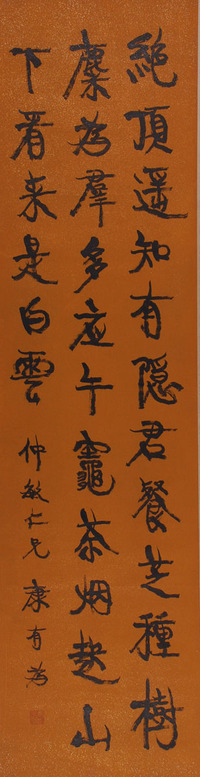 絶頂遥知有隐君餐芝種樹
麋為羣多应午竈茶烟起山
下看来是白雲
仲敏仁兄 康有為